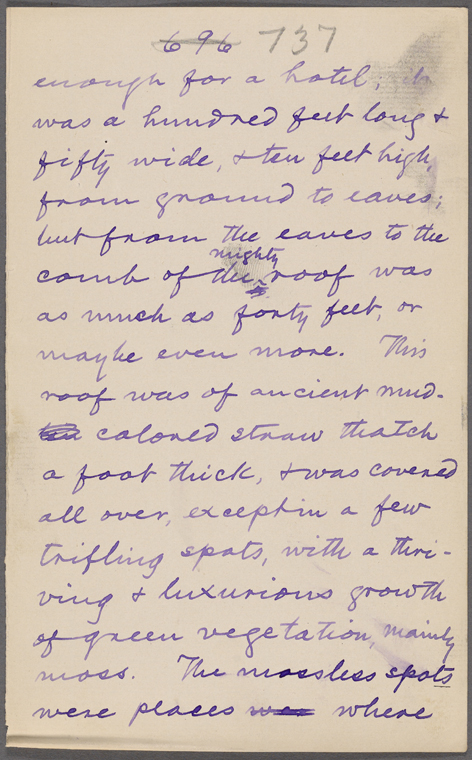 696 737
enough for a hotel; it
was a hundred feet long &
fifty wide, & ten feet high,
from ground to eaves;
but from the eaves to the
mighty
comb of the roof was
as much as forty feet, or
maybe even more. This
roof was of ancient mud-
colored straw thatch
a foot thick, & was covered
all over, except in a few
trifling spots, with a thri-
ving & luxurious growth
of green vegetation, mainly
moss. The mossless spots
were places where